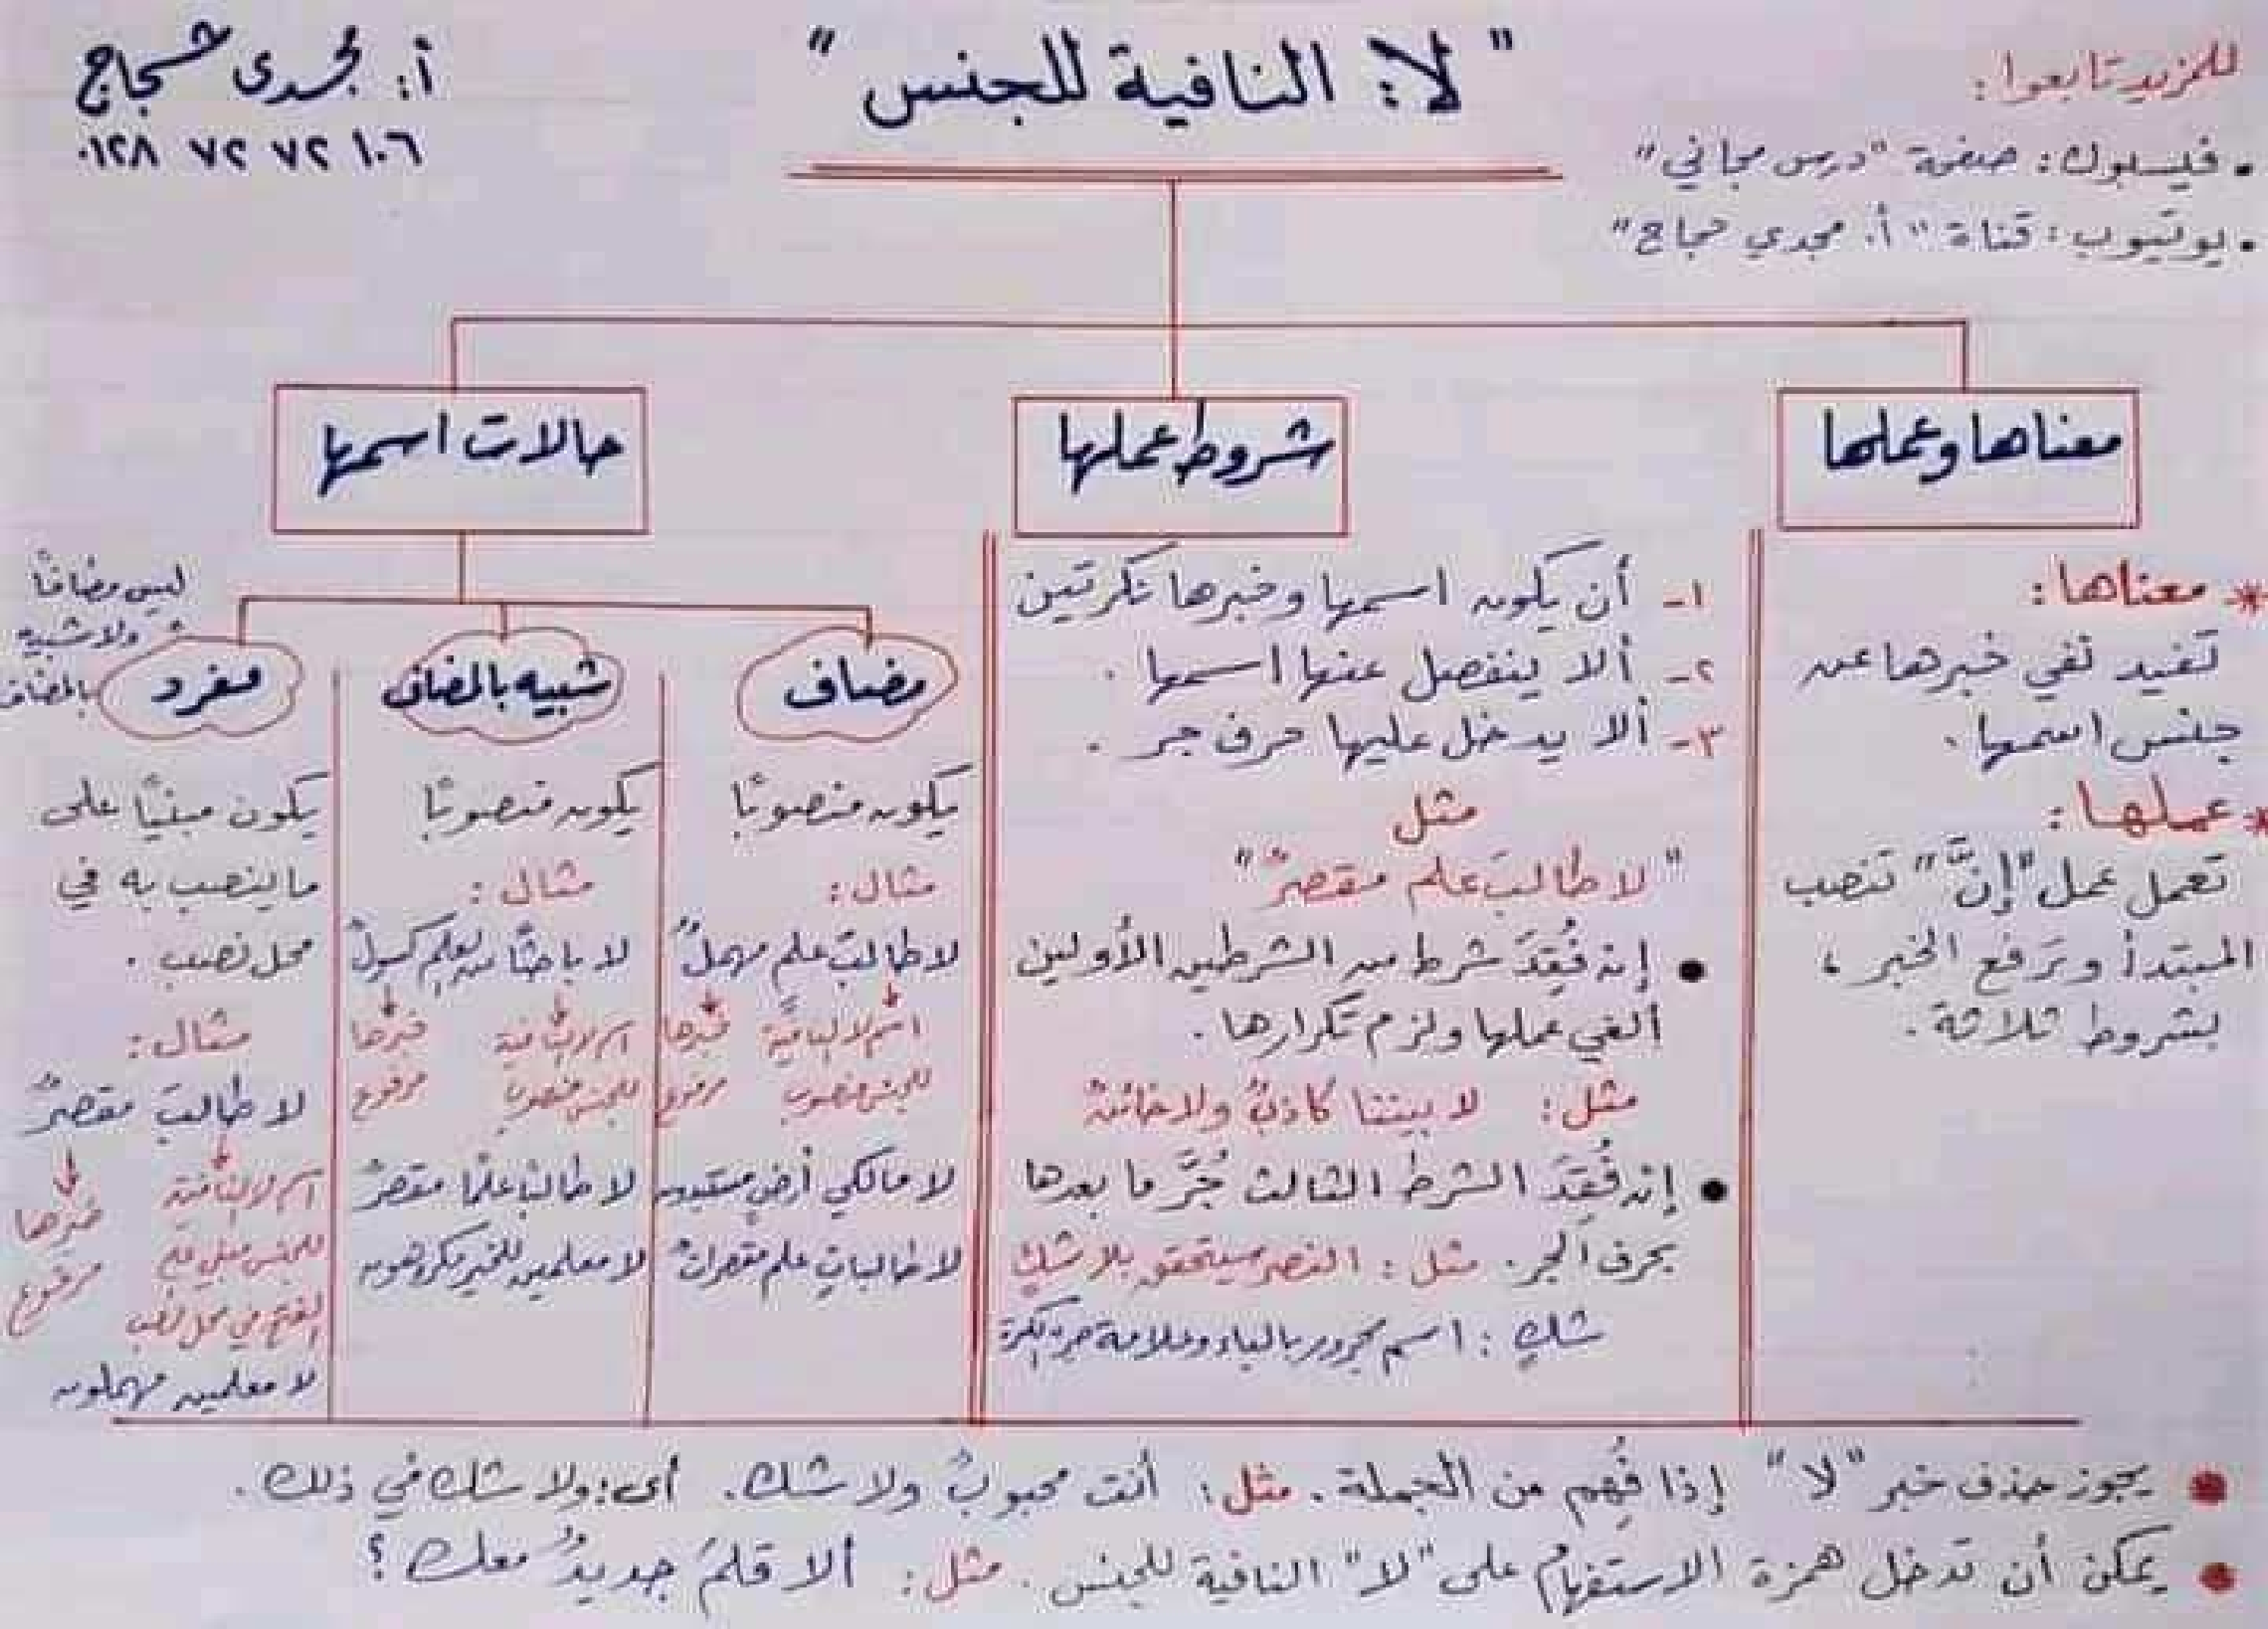 "لا: النافية للجنس"
للمزيد تابعوا:
• فيسبوك: صفحة "درس مجاني"
• يوتيوب: قناة "أ. مجدي حجاج"
أ: مجدى حجاج
٠١٢٨ ٧٢ ٧٢ ١٠٦
معناها وعملها
* معناها:
تفيد نفي خبرها عن
جنس اسمها.
* عملها:
تعمل عمل "إنَّ" تنصب
المبتدأ وترفع الخبر،
بشروط ثلاثة.
شروط عملها
١- أن يكون اسمها وخبرها نكرتين
٢- ألا ينفصل عنها اسمها.
٣- ألا يدخل عليها حرف جر.
مثل
"لا طالبَ علم مقصرٌ"
• إن فُقِدَ شرط من الشرطين الأولين
ألغي عملها ولزم تكرارها.
مثل: لا بيننا كاذبٌ ولا خائنٌ
• إن فُقِدَ الشرط الثالث جُرَّ ما بعدها
بحرف الجر. مثل: النصر سيتحقق بلا شكٍ
شكٍ: اسم مجرور بالباء وعلامة جره الكسرة
حالات اسمها
مضاف
يكون منصوبًا
مثال:
لا طالبَ علم مهملٌ
اسم لا النافية خبرها
للجنس منصوب مرفوع
لا مالكي أرضٍ مستبدون
لا طالباتِ علم مقصراتٌ
شبيه بالمضاف
يكون منصوبًا
مثال:
لا باحثًا عن العلم كسولٌ
اسم لا النافية خبرها
للجنس منصوب مرفوع
لا طالبًا علمًا مقصرٌ
لا معلمين للخير مكروهون
مفرد
ليس مضافًا
ولا شبيه
بالمضاف
يكون مبنيًا على
ما ينصب به في
محل نصب.
مثال:
لا طالبَ مقصرٌ
اسم لا النافية خبرها
للجنس مبني على مرفوع
الفتح في محل نصب
لا معلمين مهملون
• يجوز حذف خبر "لا" إذا فُهِم من الجملة. مثل: أنت محبوبٌ ولا شك. أى: ولا شك في ذلك.
• يمكن أن تدخل همزة الاستفهام على "لا" النافية للجنس. مثل: ألا قلمَ جديدٌ معك؟